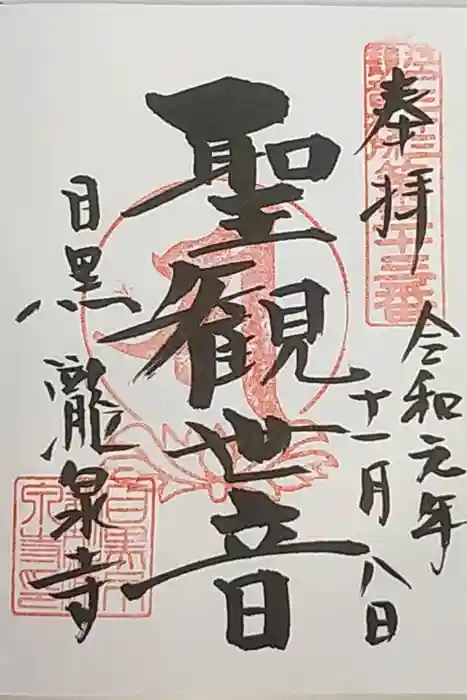 奉拝
令和元年
十一月八日
聖観世音
目黒
瀧泉寺